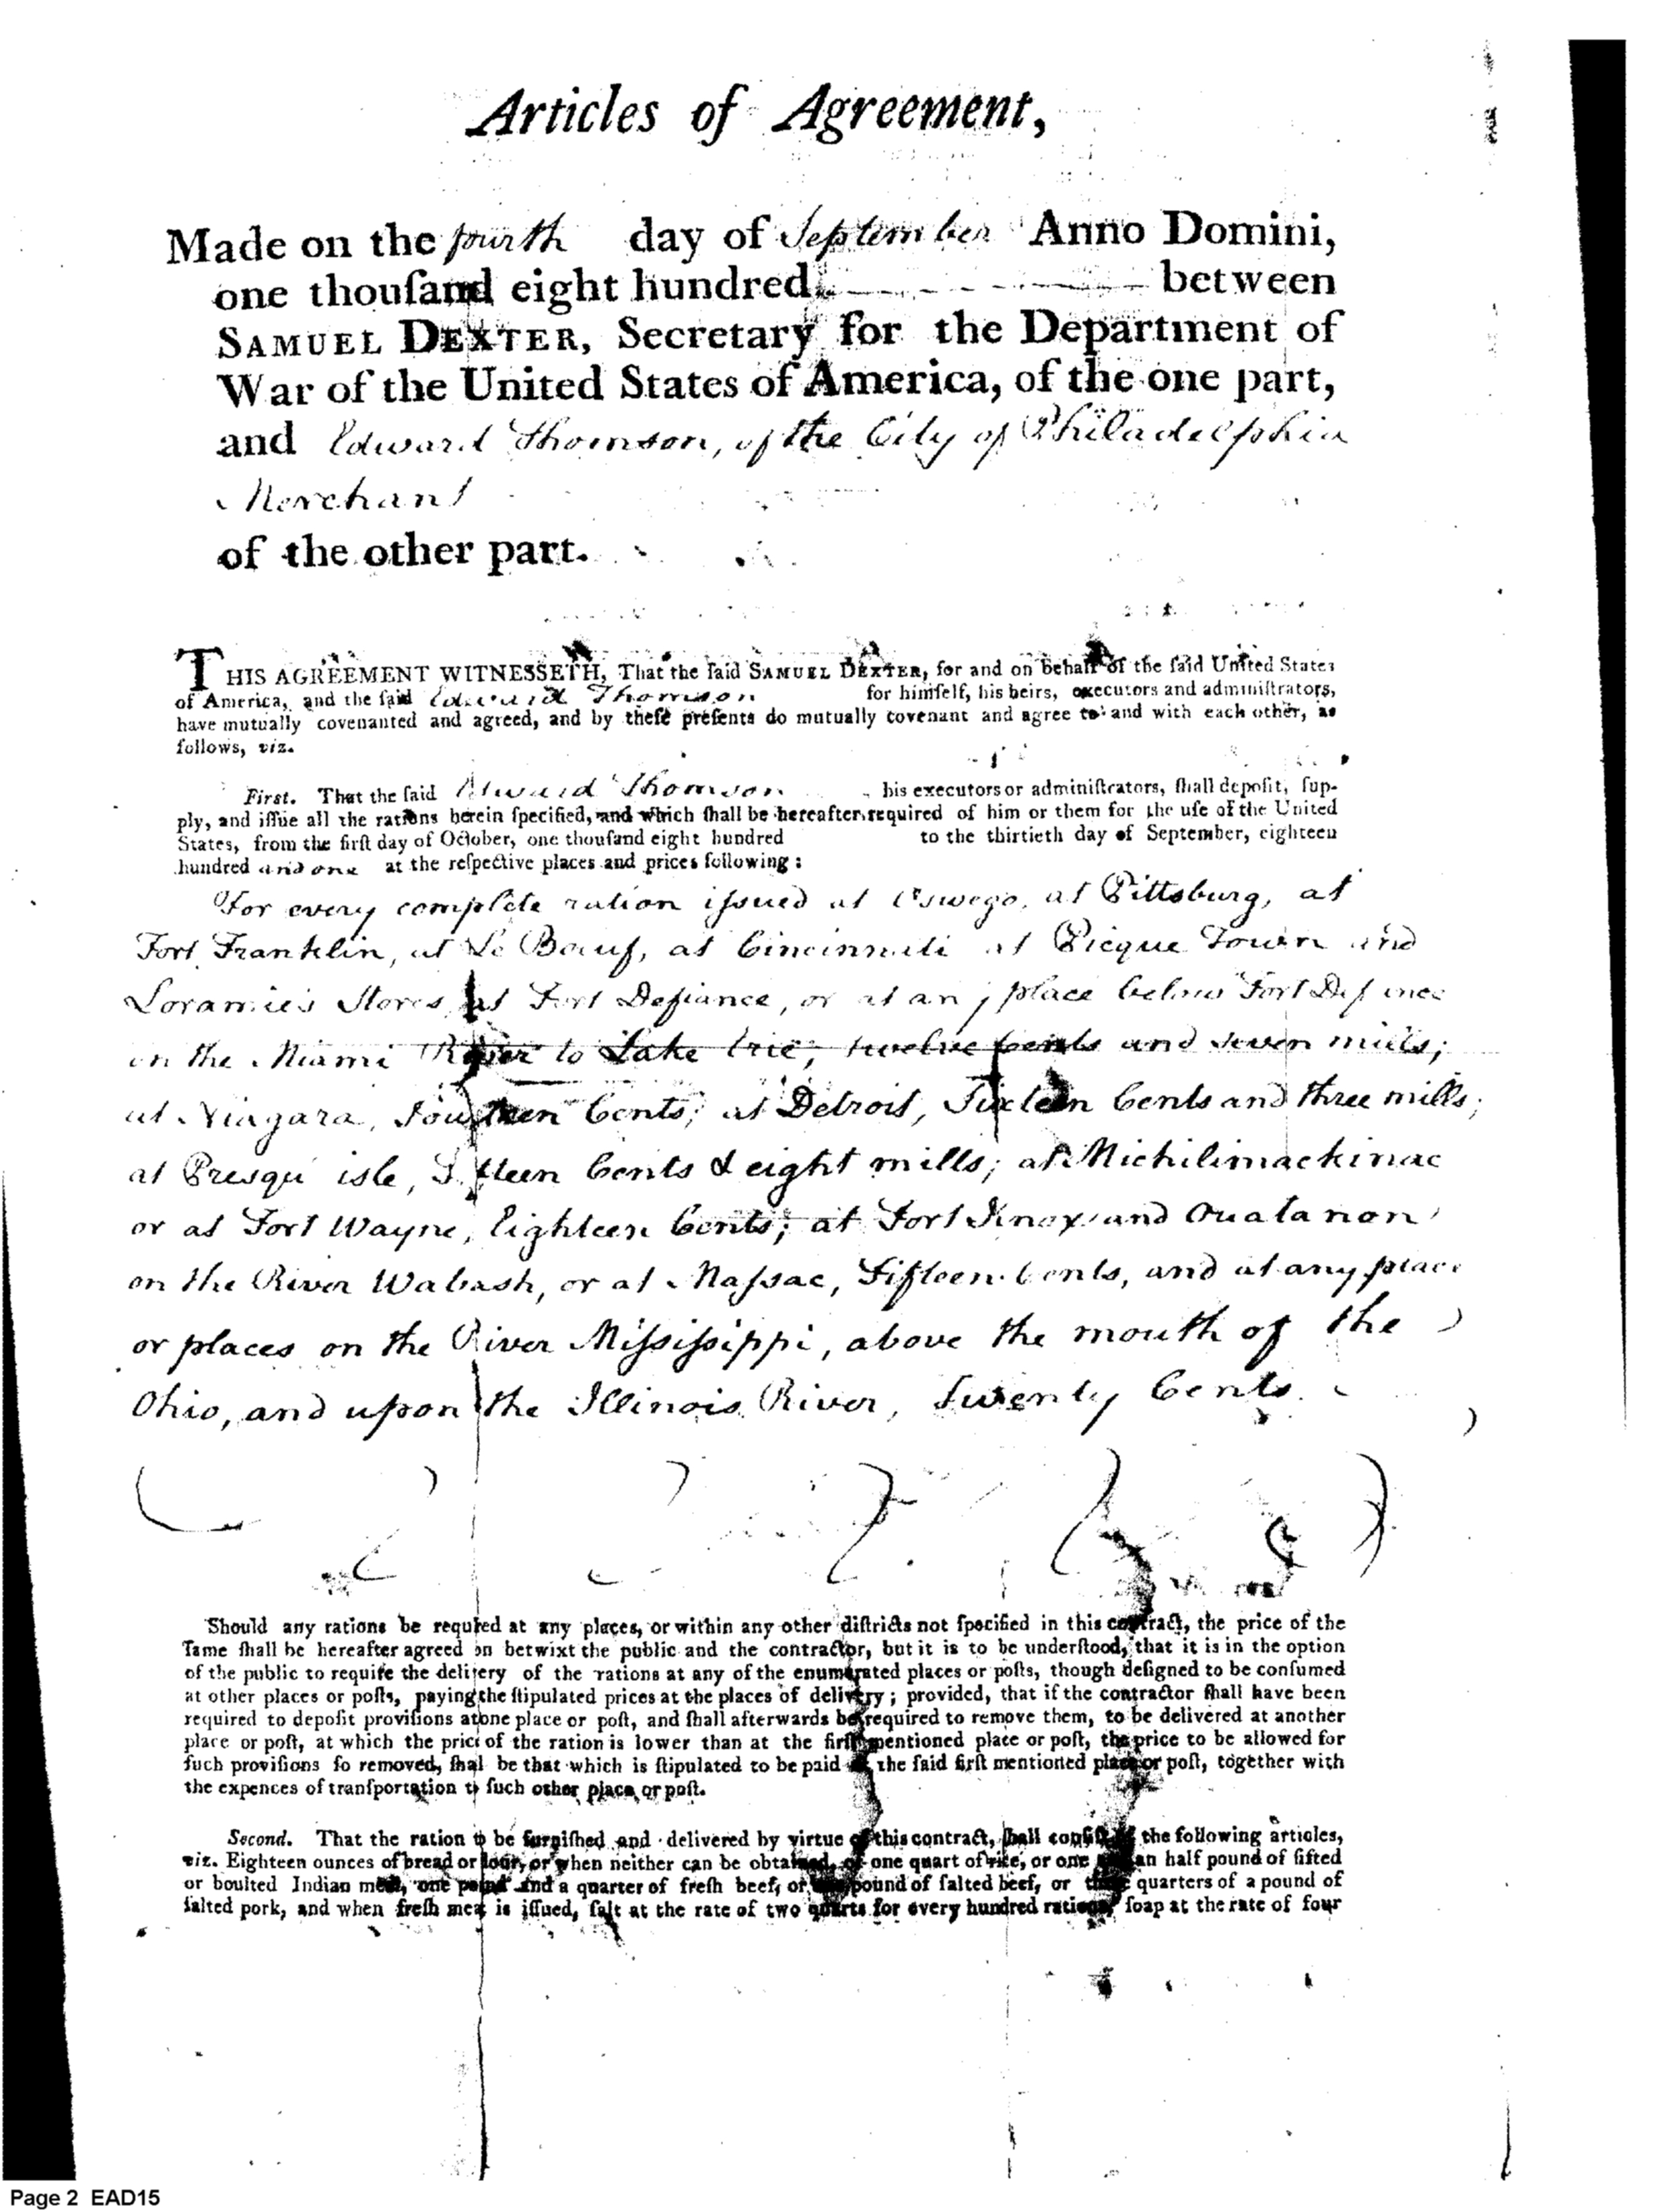 Articles of Agreement,
Made on the fourth day of September Anno Domini,
one thouſand eight hundred between
SAMUEL DEXTER, Secretary for the Department of
War of the United States of America, of the one part,
and Edward Thomson, of the City of Philadelphia
Merchant
of the other part.
THIS AGREEMENT WITNESSETH, That the ſaid SAMUEL DEXTER, for and on behalf of the ſaid United States
of America, and the ſaid Edward Thomson for himſelf, his heirs, executors and adminiſtrators,
have mutually covenanted and agreed, and by theſe preſents do mutually covenant and agree to and with each other, as
follows, viz.
First. That the ſaid Edward Thomson his executors or adminiſtrators, ſhall depoſit, ſup-
ply, and iſſue all the rations herein ſpecified, and which ſhall be hereafter required of him or them for the uſe of the United
States, from the firſt day of October, one thouſand eight hundred to the thirtieth day of September, eighteen
hundred and one at the reſpective places and prices following:
For every complete ration iſsued at Oswego, at Pittsburg, at
Fort Franklin, at Le Bœuf, at Cincinnati at Picque Town and
Loramie's Stores, at Fort Defiance, or at any place below Fort Defiance
on the Miami River to Lake Erie, twelve Cents and seven mills;
at Niagara, Fourteen Cents; at Detroit, Sixteen Cents and three mills;
at Presqu' isle, Fifteen Cents & eight mills; at Michilimackinac
or at Fort Wayne, Eighteen Cents; at Fort Knox and Ouatanon
on the River Wabash, or at Maſsac, Fifteen Cents, and at any place
or places on the River Miſsiſsippi, above the mouth of the
Ohio, and upon the Illinois River, Twenty Cents.
Should any rations be required at any places, or within any other diſtricts not ſpecified in this contract, the price of the
ſame ſhall be hereafter agreed on betwixt the public and the contractor, but it is to be underſtood, that it is in the option
of the public to require the delivery of the rations at any of the enumerated places or poſts, though deſigned to be conſumed
at other places or poſts, paying the ſtipulated prices at the places of delivery; provided, that if the contractor ſhall have been
required to depoſit proviſions at one place or poſt, and ſhall afterwards be required to remove them, to be delivered at another
place or poſt, at which the price of the ration is lower than at the firſt mentioned place or poſt, the price to be allowed for
ſuch proviſions ſo removed, ſhal be that which is ſtipulated to be paid at the ſaid firſt mentioned place or poſt, together with
the expences of tranſportation to ſuch other place or poſt.
Second. That the ration to be furniſhed and delivered by virtue of this contract, ſhall conſiſt of the following articles,
viz. Eighteen ounces of bread or flour, or when neither can be obtained, of one quart of rice, or one and an half pound of ſifted
or boulted Indian meal, one pound and a quarter of freſh beef, or one pound of ſalted beef, or three quarters of a pound of
ſalted pork, and when freſh meat is iſſued, ſalt at the rate of two quarts for every hundred rations, ſoap at the rate of four
Page 2 EAD15